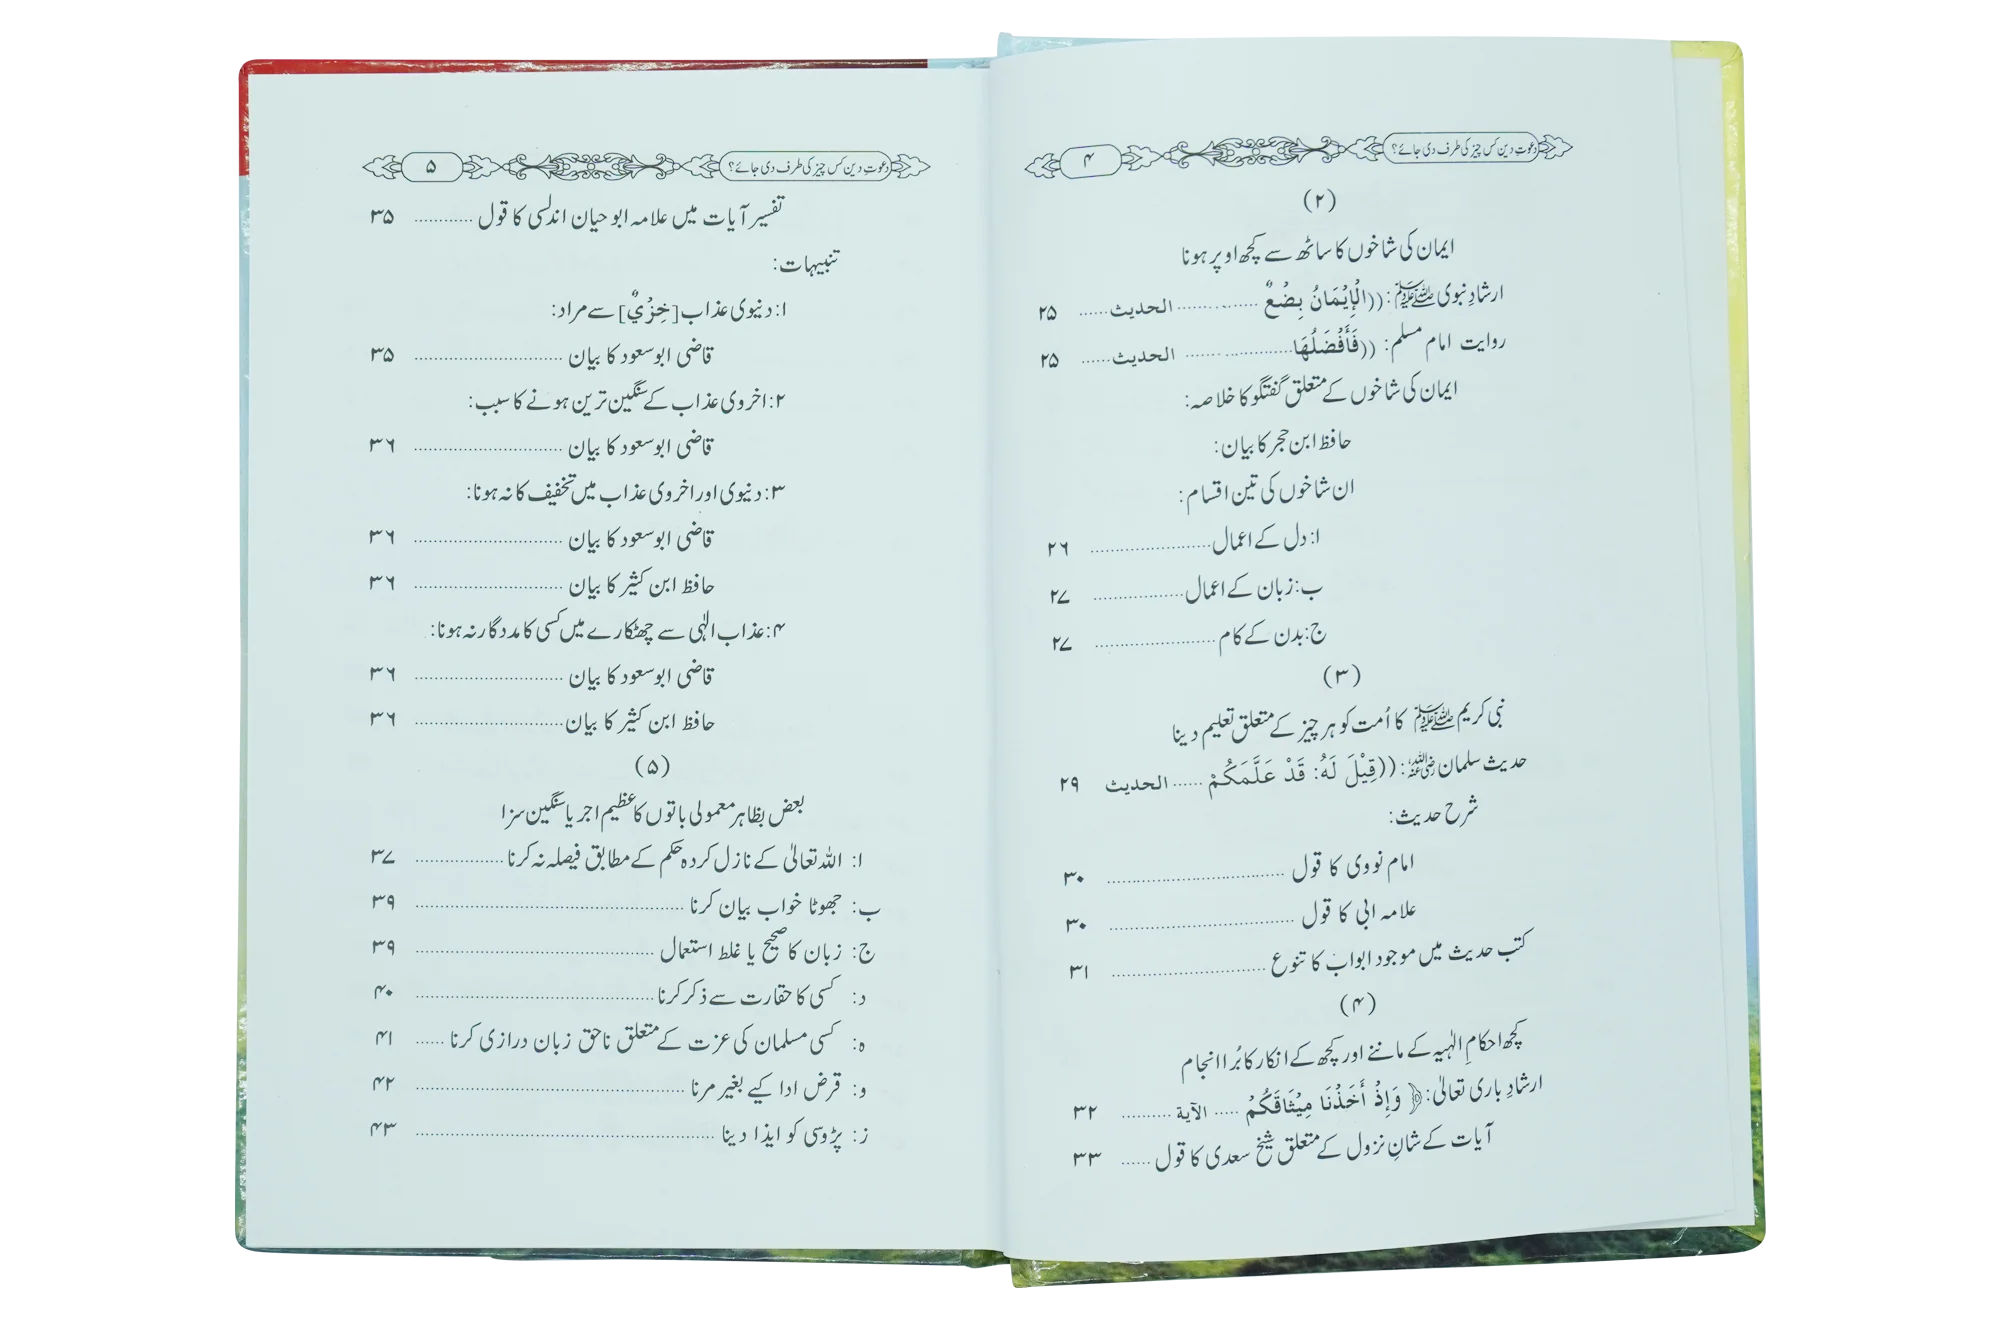 دعوتِ دین کس چیز کی طرف دی جائے؟ ۴
(۲)
ایمان کی شاخوں کا ساٹھ سے کچھ اوپر ہونا
ارشادِ نبوی ﷺ: ((الْإِيْمَانُ بِضْعٌ ............ الحدیث ...... ۲۵
روایت امام مسلم: ((فَأَفْضَلُهَا.................... الحدیث ...... ۲۵
ایمان کی شاخوں کے متعلق گفتگو کا خلاصہ:
حافظ ابن حجر کا بیان:
ان شاخوں کی تین اقسام:
ا: دل کے اعمال ........................ ۲۶
ب: زبان کے اعمال .................. ۲۷
ج: بدن کے کام ........................ ۲۷
(۳)
نبی کریم ﷺ کا اُمت کو ہر چیز کے متعلق تعلیم دینا
حدیث سلمان رضی اللہ عنہ: ((قِيْلَ لَهُ: قَدْ عَلَّمَكُمْ ...... الحدیث ۲۹
شرح حدیث:
امام نووی کا قول .................................. ۳۰
علامہ ابی کا قول .................................. ۳۰
کتب حدیث میں موجود ابواب کا تنوع .............................. ۳۱
(۴)
کچھ احکامِ الٰہیہ کے ماننے اور کچھ کے انکار کا بُرا انجام
ارشادِ باری تعالیٰ: ﴿ وَإِذْ أَخَذْنَا مِيْثَاقَكُمْ ..... الآية .......... ۳۲
آیات کے شانِ نزول کے متعلق شیخ سعدی کا قول ...... ۳۳
دعوتِ دین کس چیز کی طرف دی جائے؟ ۵
تفسیر آیات میں علامہ ابو حیان اندلسی کا قول ............ ۳۵
تنبیہات:
۱: دنیوی عذاب [خِزْيٌ] سے مراد:
قاضی ابوسعود کا بیان .............................. ۳۵
۲: اخروی عذاب کے سنگین ترین ہونے کا سبب:
قاضی ابوسعود کا بیان .............................. ۳۶
۳: دنیوی اور اخروی عذاب میں تخفیف کا نہ ہونا:
قاضی ابوسعود کا بیان .............................. ۳۶
حافظ ابن کثیر کا بیان .............................. ۳۶
۴: عذاب الٰہی سے چھٹکارے میں کسی کا مددگار نہ ہونا:
قاضی ابوسعود کا بیان .............................. ۳۶
حافظ ابن کثیر کا بیان .............................. ۳۶
(۵)
بعض بظاہر معمولی باتوں کا عظیم اجر یا سنگین سزا
ا: اللہ تعالیٰ کے نازل کردہ حکم کے مطابق فیصلہ نہ کرنا .................. ۳۷
ب: جھوٹا خواب بیان کرنا .................................................. ۳۹
ج: زبان کا صحیح یا غلط استعمال .............................................. ۳۹
د: کسی کا حقارت سے ذکر کرنا .............................................. ۴۰
ہ: کسی مسلمان کی عزت کے متعلق ناحق زبان درازی کرنا ...... ۴۱
و: قرض ادا کیے بغیر مرنا .................................................. ۴۲
ز: پڑوسی کو ایذا دینا ...................................................... ۴۳